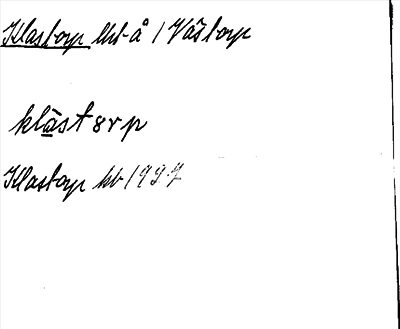 Klastorp hb å / Våstorp
klastərp
Klastorp hb 1937